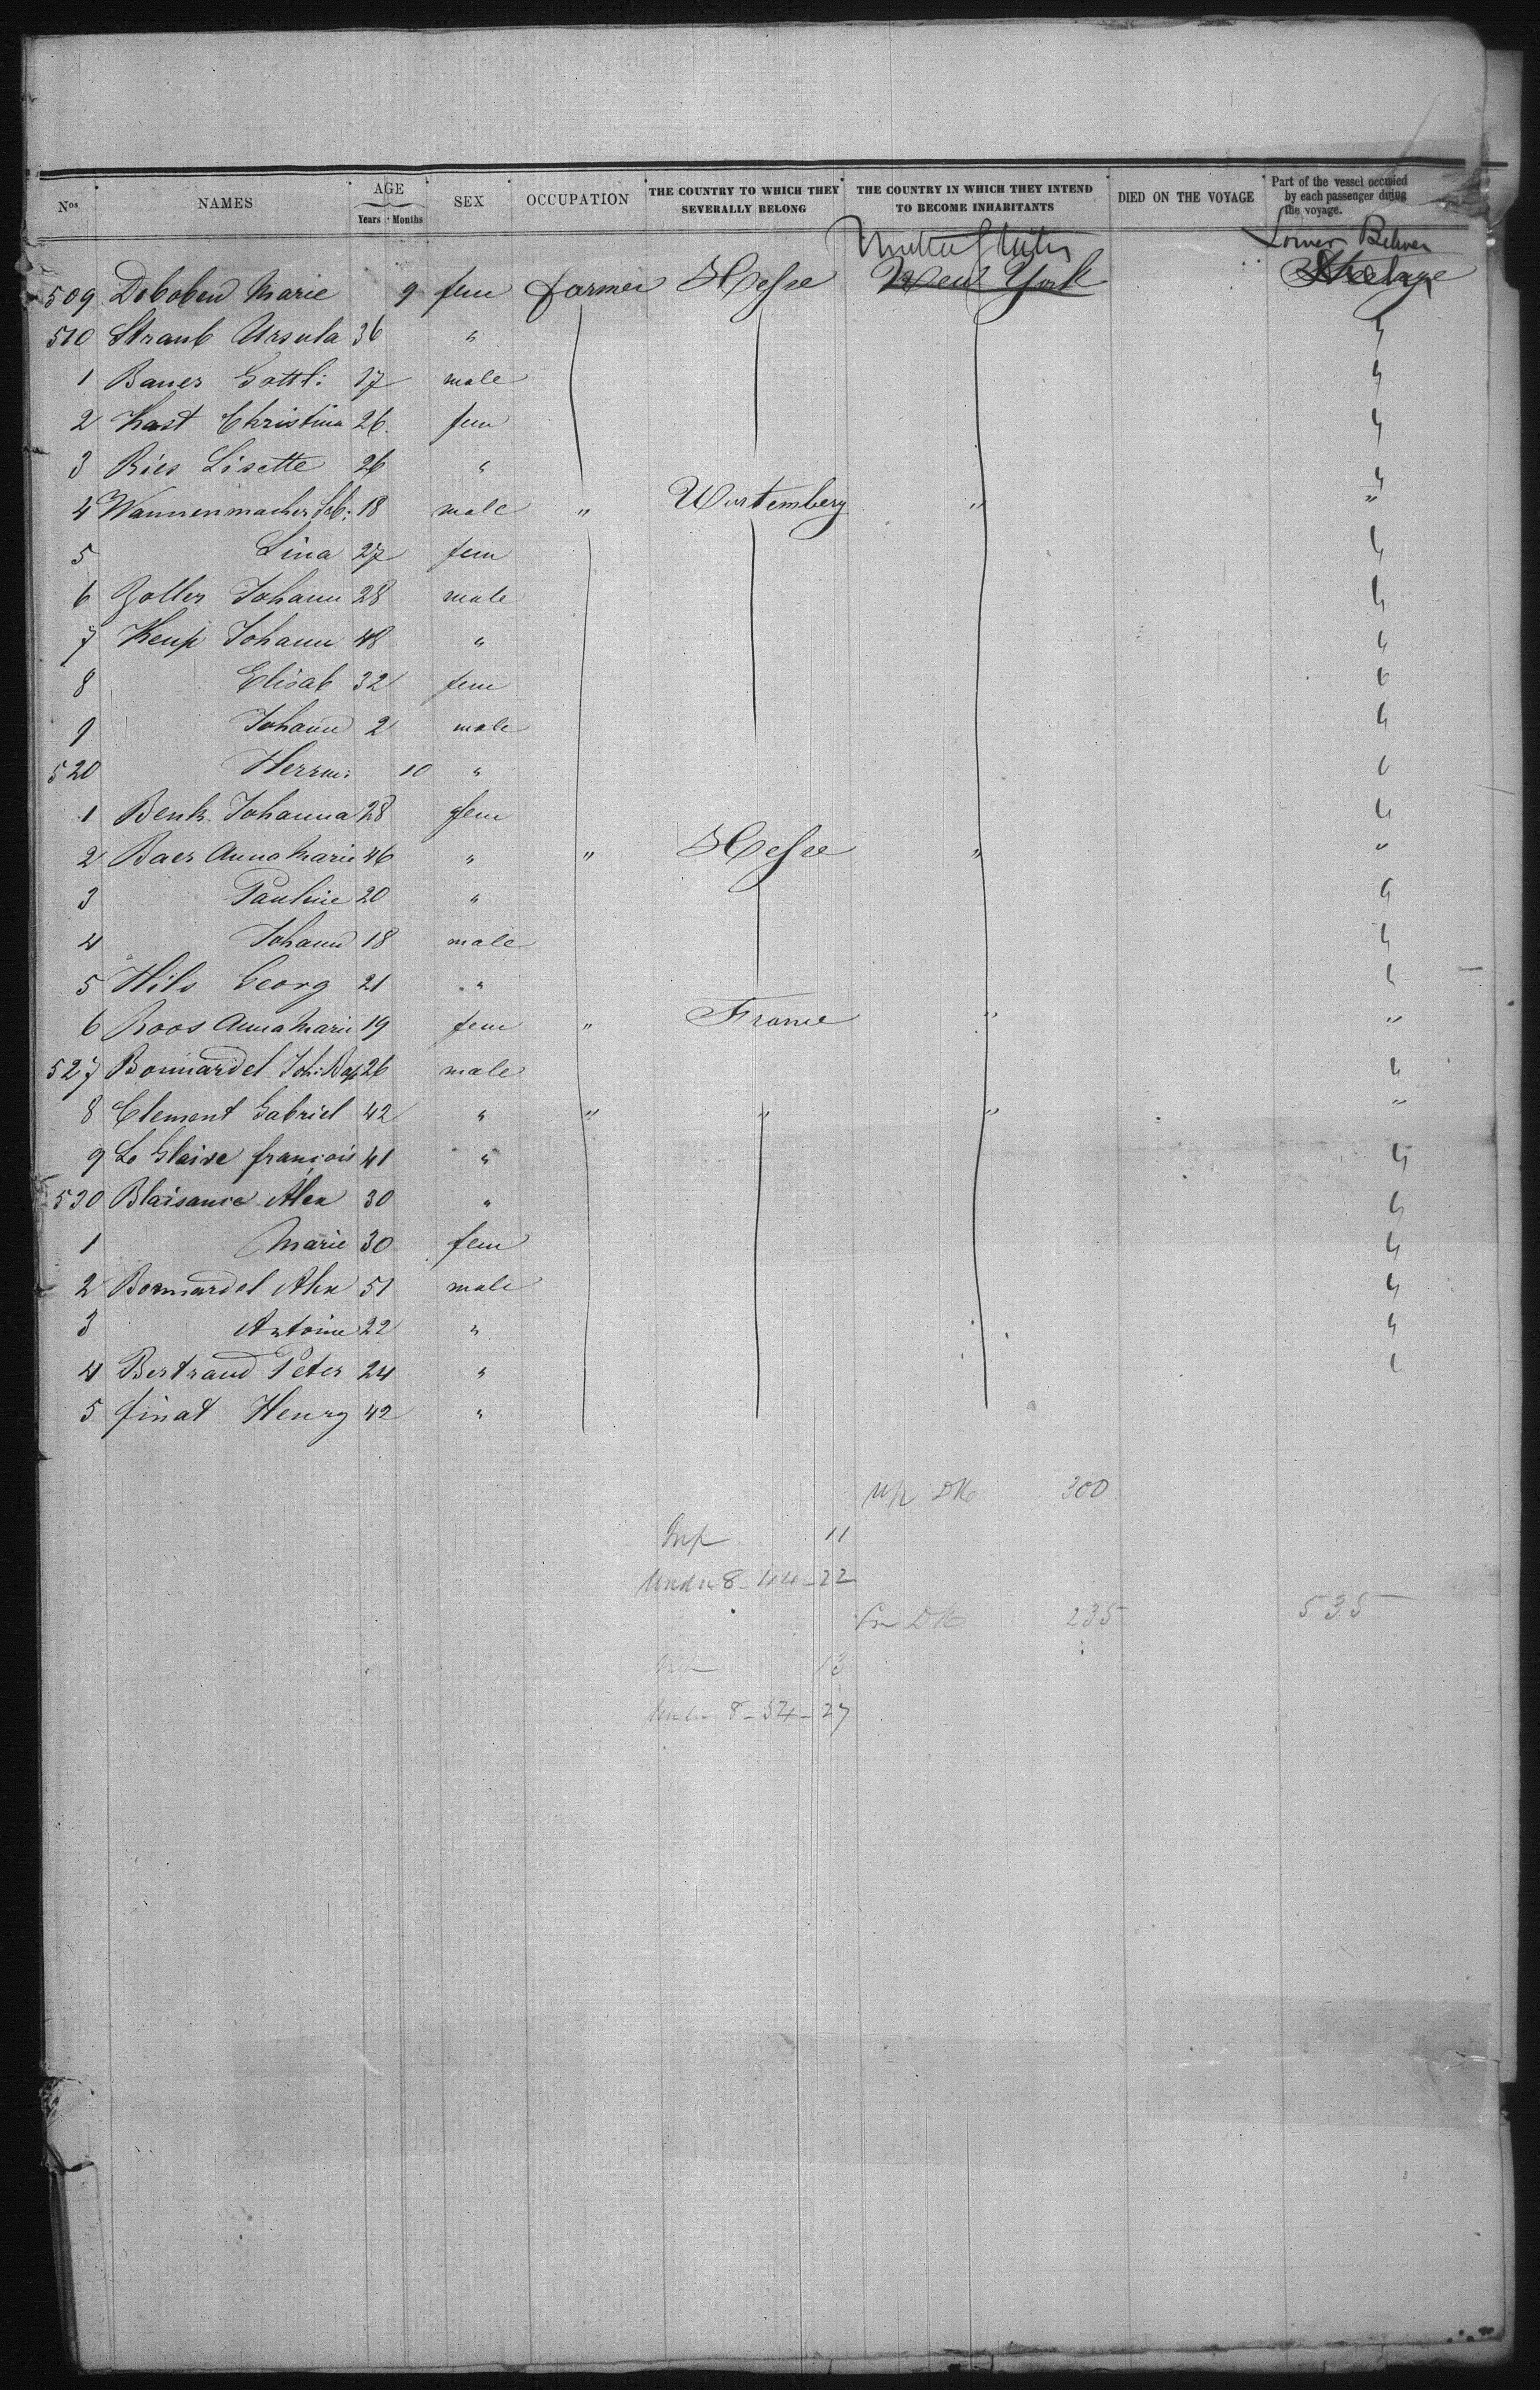 Nos NAMES AGE Years Months SEX OCCUPATION THE COUNTRY TO WHICH THEY SEVERALLY BELONG THE COUNTRY IN WHICH THEY INTEND TO BECOME INHABITANTS DIED ON THE VOYAGE Part of the vessel occupied by each passenger during the voyage.
United States Lower Betwen
509 Marie 9 fem farmer Hesse New York Steerage
510 Straub Ursula 36 "
1 Bauer Gottl: 17 male
2 Kast Christina 26 fem
3 Ries Lisette 26 "
4 Wannenmacher Seb: 18 male " Wurtemberg " "
5 Lina 27 fem
6 Zoller Johann 28 male
7 Kenp Johann 48 "
8 Elisab 32 fem
9 Johann 2 male
520 Herrm: 10 "
1 Benk Johanna 28 fem
2 Baer Anna Marie 46 " " Hesse " "
3 Pauline 20 "
4 Johann 18 male
5 Hils Georg 21 "
6 Roos Anna Marie 19 fem " France " "
527 Bonnardel Joh: Bap 26 male
8 Clement Gabriel 42 " " " " "
9 Le Glaive françois 41 "
530 Blaisance Alex 30 "
1 Marie 30 fem
2 Bonnardel Alex 51 male
3 Antoine 22 "
4 Bertrand Peter 24 "
5 finat Henry 42 "
Up DK 300
Inf 11
Under 8 - 44 - 22
DK 235 535
Inf 13
Under 8 - 54 - 27